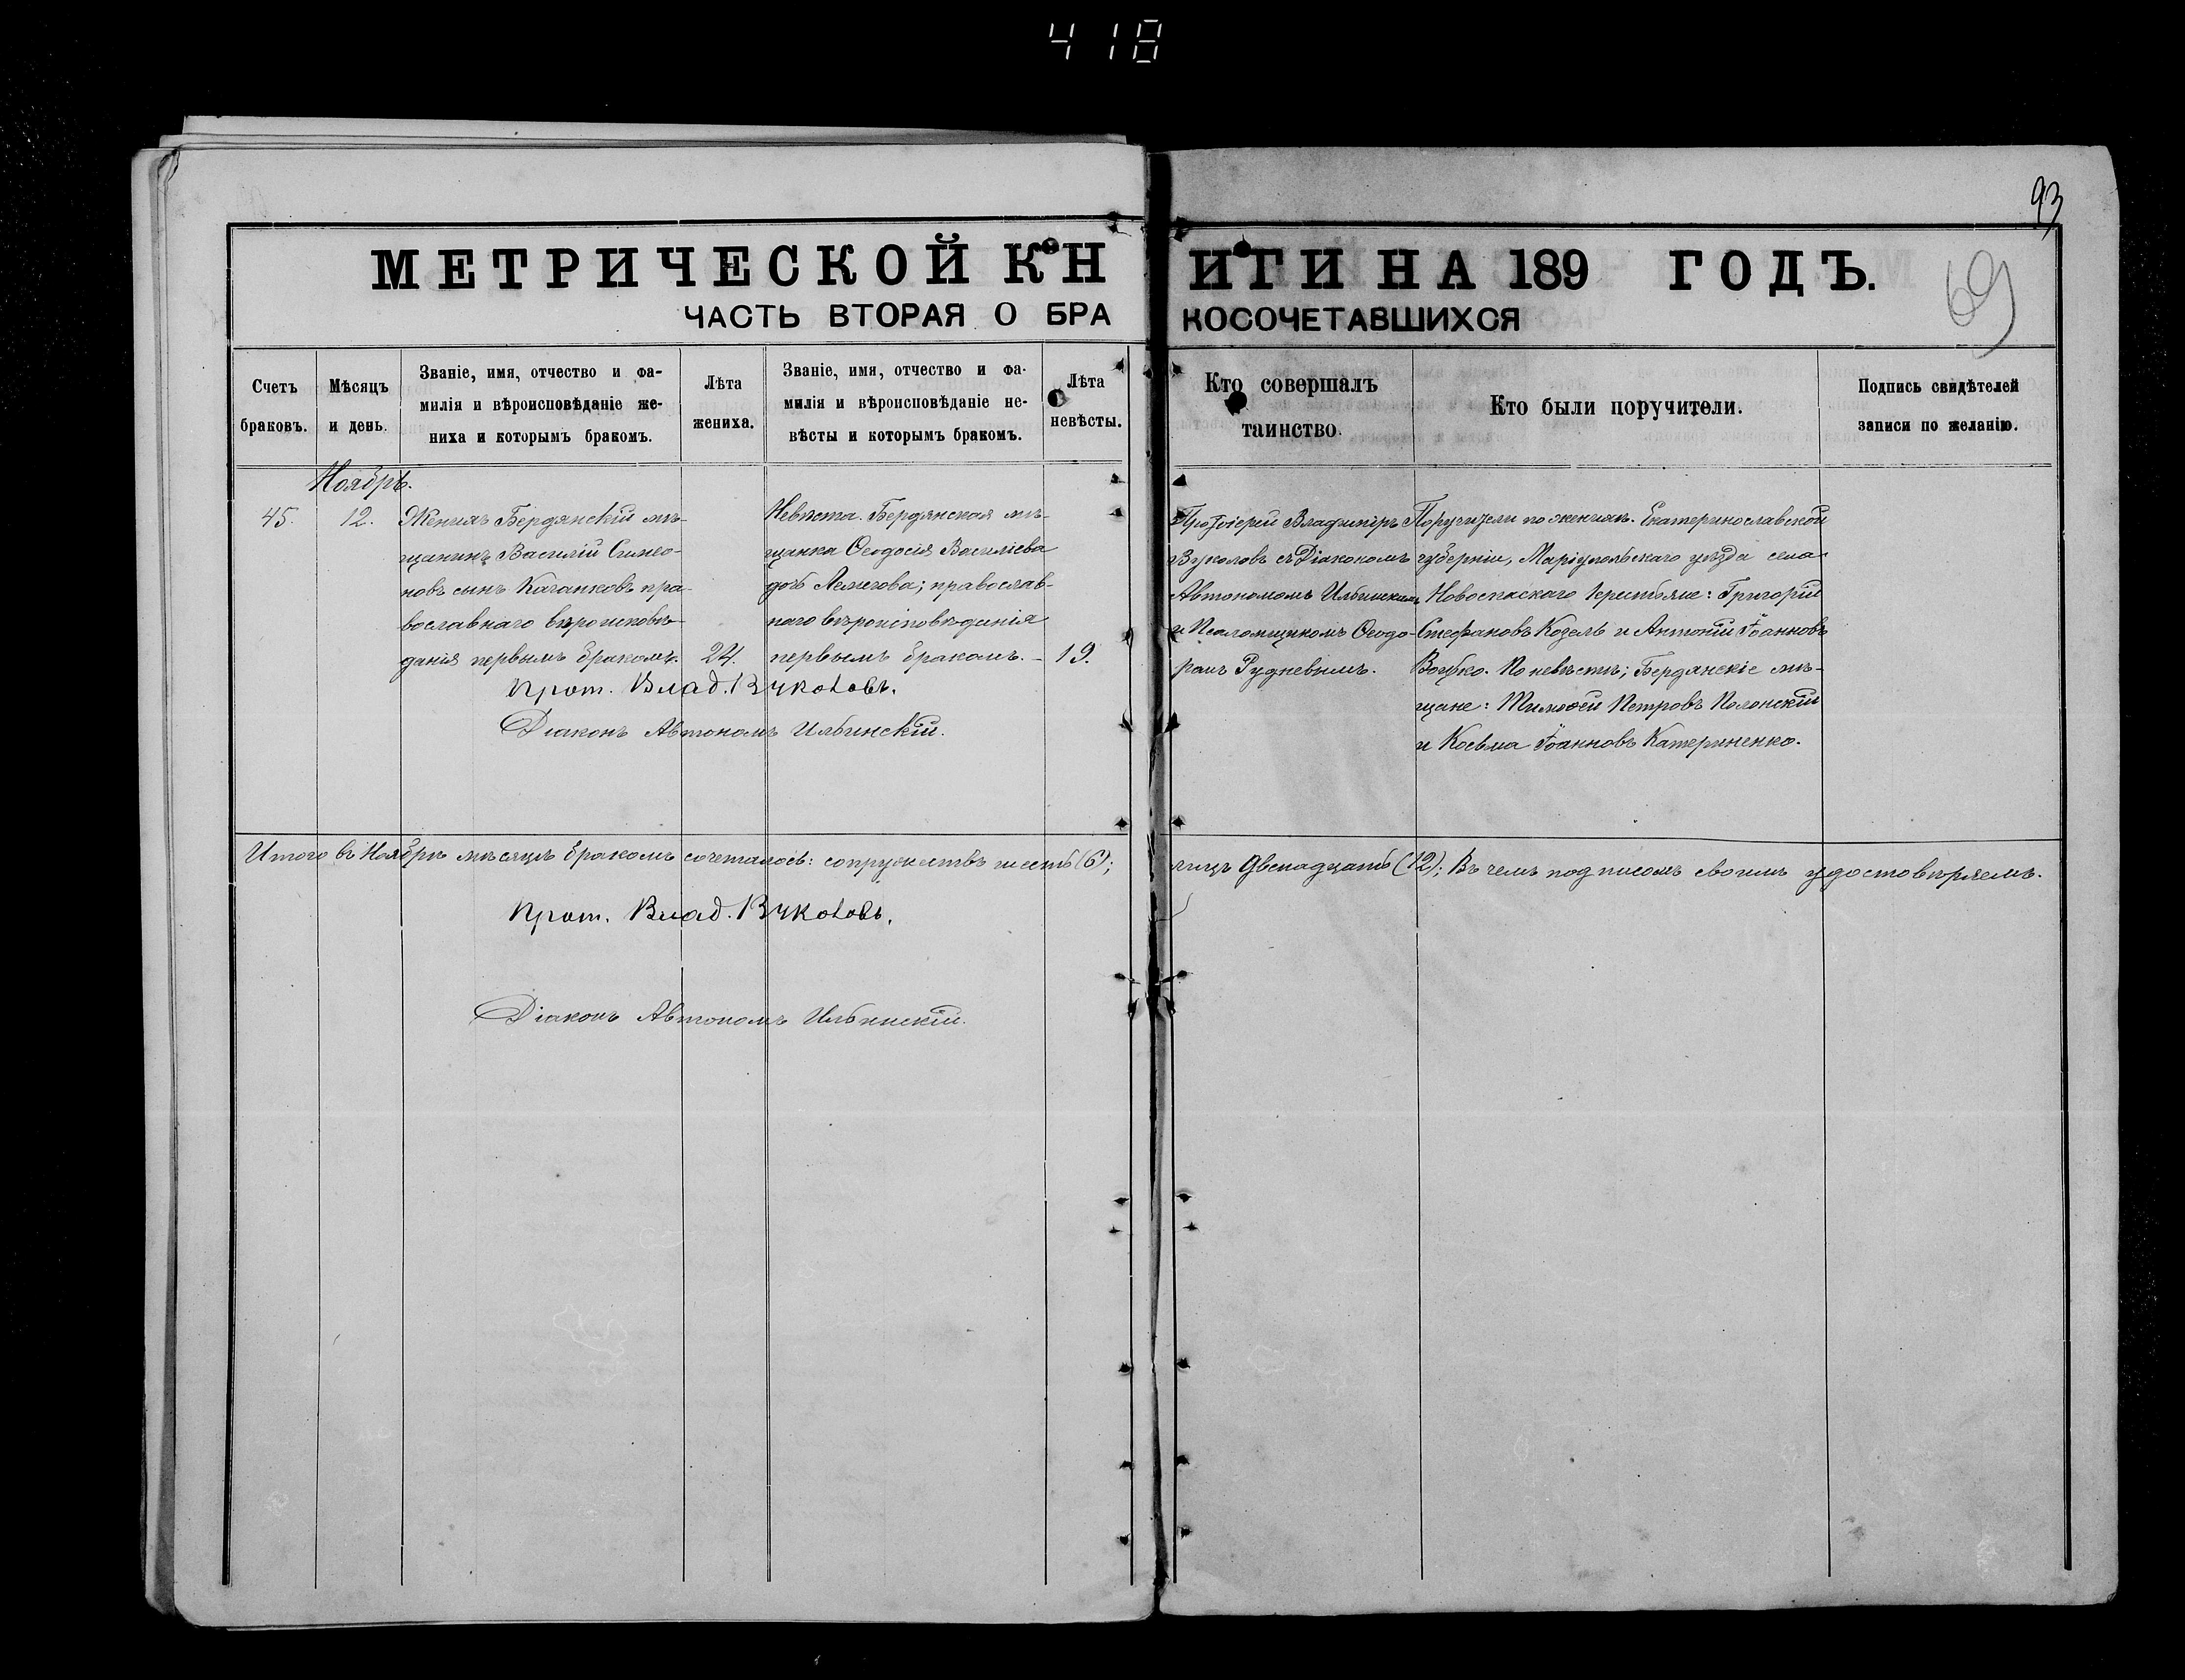 418
93
69
МЕТРИЧЕСКОЙ КНИГИ НА 189 ГОДЪ.
ЧАСТЬ ВТОРАЯ О БРАКОСОЧЕТАВШИХСЯ
Счетъ
браковъ.
Мѣсяцъ
и день.
Званіе, имя, отчество и фа-
милія и вѣроисповѣданіе же-
ниха и которымъ бракомъ.
Лѣта
жениха.
Званіе, имя, отчество и фа-
милія и вѣроисповѣданіе не-
вѣсты и которымъ бракомъ.
Лѣта
невѣсты.
Кто совершалъ
таинство.
Кто были поручители.
Подпись свидѣтелей
записи по желанію.
Ноябрь.
45.
12.
Женихъ Бердянскій мѣ-
щанинъ Василій Симео-
новъ сынъ Каганковъ пра-
вославнаго вѣроисповѣ-
данія первымъ бракомъ.
24.
Невѣста. Бердянская мѣ-
щанка Ѳеодосія Василіева
дочь; православ-
наго вѣроисповѣданія
первымъ бракомъ. –
19.
Протоіерей Владиміръ
Вуколовъ съ Діакономъ
Автономомъ Ильинскимъ
и Псаломщикомъ Ѳеодо-
ромъ Рудневымъ.
Поручители по женихѣ. Екатеринославской
губерніи, Маріупольскаго уѣзда села
Новоспаскаго крестьяне: Григорій
Стефановъ Козелъ и Антоній Іоанновъ
По невѣстѣ; Бердянскіе мѣ-
щане: Тимоѳей Петровъ Полонскій
и Косьма Іоанновъ Катериненко.
Прот. Влад. Вуколовъ.
Діаконъ Автономъ Ильинскій.
Итого въ Ноябрѣ мѣсяцѣ бракомъ сочеталось: супружествъ шесть (6); лицъ двенадцать (12); Въ чемъ подписомъ своимъ удостовѣряемъ.
Прот. Влад. Вуколовъ.
Діаконъ Автономъ Ильинскій.